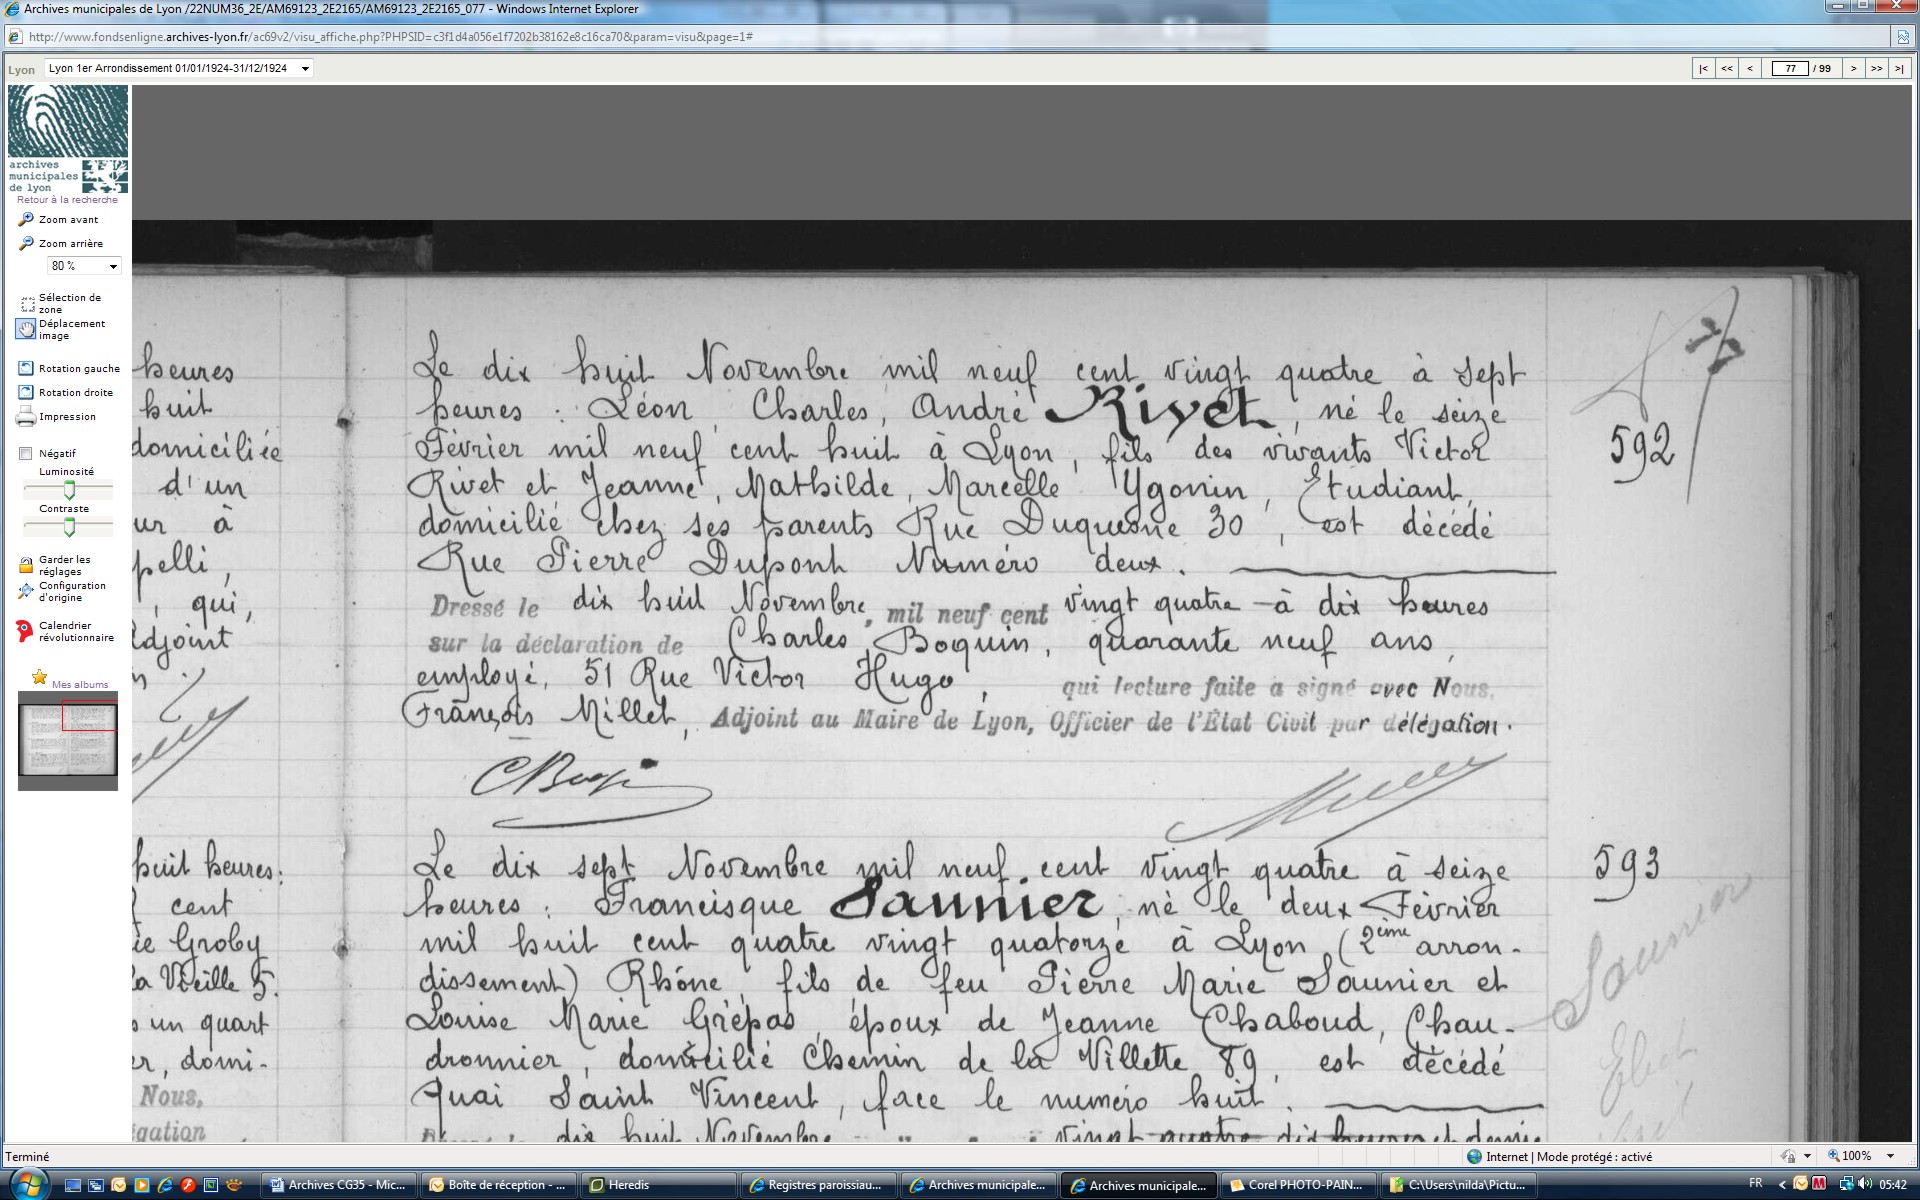 Archives municipales de Lyon /22NUM36_2E/AM69123_2E2165/AM69123_2E2165_077 - Windows Internet Explorer
http://www.fondsenligne.archives-lyon.fr/ac69v2/visu_affiche.php?PHPSID=c3f1d4a056e1f7202b38162e8c16ca70&param=visu&page=1#
Lyon Lyon 1er Arrondissement 01/01/1924-31/12/1924 |< << < 77 / 99 > >> >|
archives
municipales
de lyon
Retour à la recherche
Zoom avant
Zoom arrière
80 %
Sélection de
zone
Déplacement
image
Rotation gauche
Rotation droite
Impression
Négatif
Luminosité
Contraste
Garder les
réglages
Configuration
d'origine
Calendrier
révolutionnaire
Mes albums
heures
huit
domiciliée
d'un
ur à
pelli,
, qui,
Adjoint
huit heures:
cent
ie Groby
la Vieille 5.
s un quart
er, domi-
Nous,
gation
Le dix huit Novembre mil neuf cent vingt quatre à sept
heures : Léon, Charles, André Rivet, né le seize
592
Février mil neuf cent huit à Lyon, fils des vivants Victor
Rivet et Jeanne, Mathilde, Marcelle Ygonin, Etudiant,
domicilié chez ses parents Rue Duquesne 30, est décédé
Rue Pierre Dupont Numéro deux.
Dressé le dix huit Novembre, mil neuf cent vingt quatre à dix heures
sur la déclaration de Charles Boquin, quarante neuf ans,
employé, 51 Rue Victor Hugo, qui lecture faite a signé avec Nous,
François Millet, Adjoint au Maire de Lyon, Officier de l'État Civil par délégation.
Le dix sept Novembre mil neuf cent vingt quatre à seize
593
heures : Francisque Saunier, né le deux Février
mil huit cent quatre vingt quatorze à Lyon (2ème arron-
dissement) Rhône, fils de feu Pierre Marie Saunier et
Saunier
Louise Marie Grépas, époux de Jeanne Chaboud, Chau-
dronnier, domicilié Chemin de la Villette 89, est décédé
Quai Saint Vincent, face le numéro huit.
dix huit Novembre vingt quatre dix heures et demie
Terminé
Internet | Mode protégé : activé
100%
Archives CG35 - Mic...
Boîte de réception - ...
Heredis
Registres paroissiau...
Archives municipale...
Archives municipale...
Corel PHOTO-PAIN...
C:\Users\nilda\Pictu...
FR
05:42